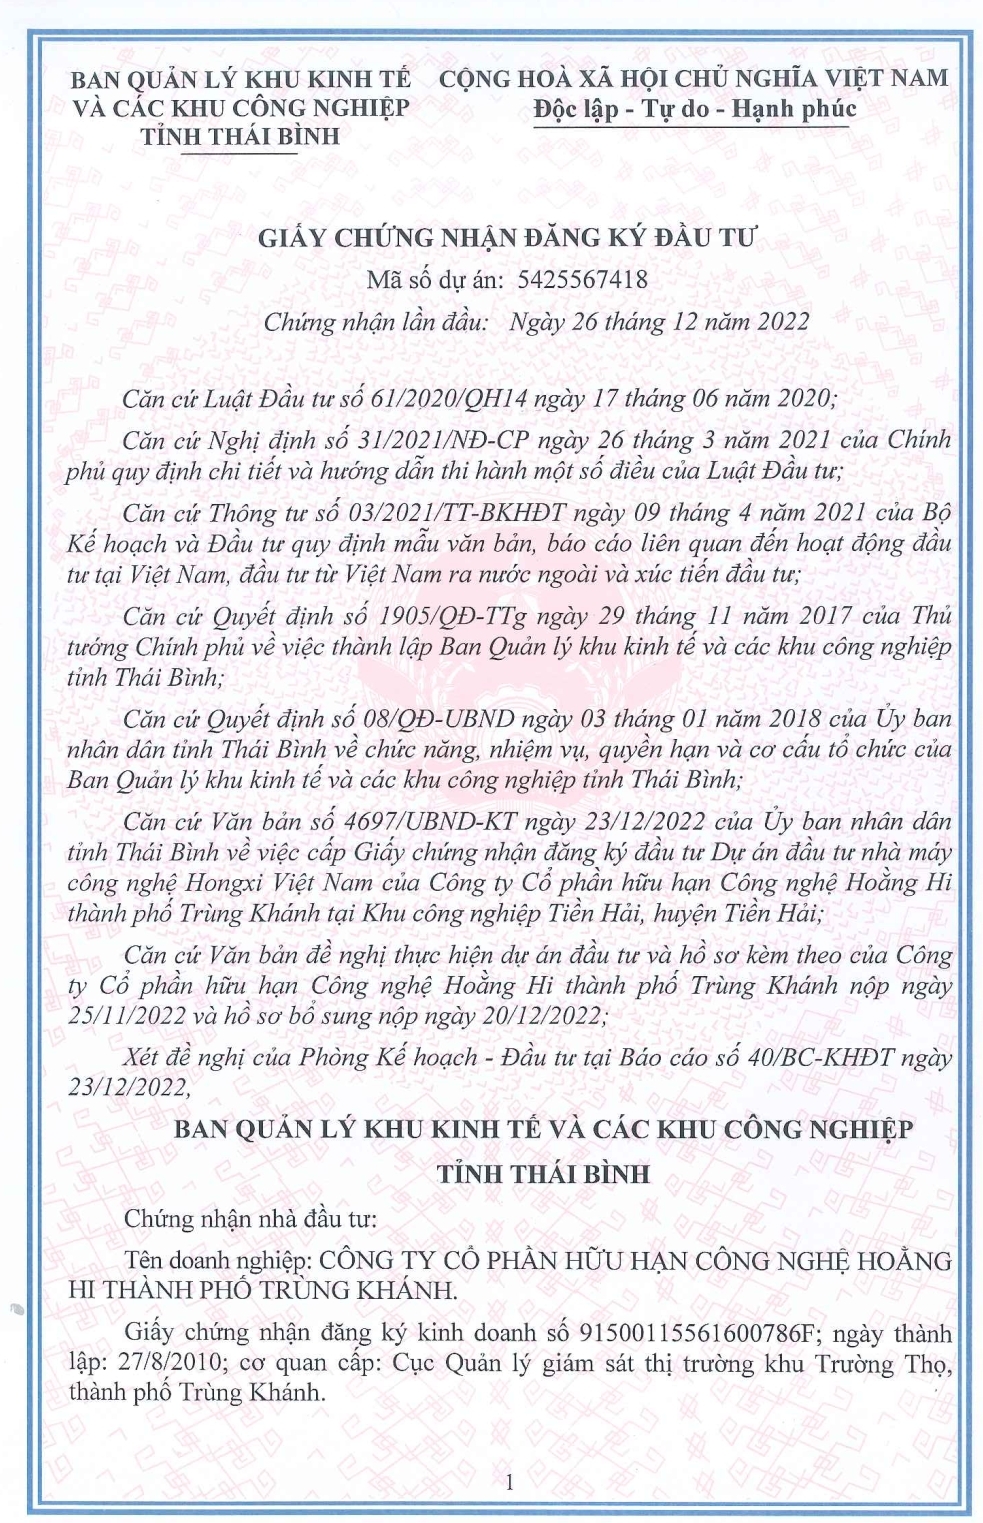 BAN QUẢN LÝ KHU KINH TẾ
VÀ CÁC KHU CÔNG NGHIỆP
TỈNH THÁI BÌNH
CỘNG HOÀ XÃ HỘI CHỦ NGHĨA VIỆT NAM
Độc lập - Tự do - Hạnh phúc
GIẤY CHỨNG NHẬN ĐĂNG KÝ ĐẦU TƯ
Mã số dự án: 5425567418
Chứng nhận lần đầu: Ngày 26 tháng 12 năm 2022
Căn cứ Luật Đầu tư số 61/2020/QH14 ngày 17 tháng 06 năm 2020;
Căn cứ Nghị định số 31/2021/NĐ-CP ngày 26 tháng 3 năm 2021 của Chính
phủ quy định chi tiết và hướng dẫn thi hành một số điều của Luật Đầu tư;
Căn cứ Thông tư số 03/2021/TT-BKHĐT ngày 09 tháng 4 năm 2021 của Bộ
Kế hoạch và Đầu tư quy định mẫu văn bản, báo cáo liên quan đến hoạt động đầu
tư tại Việt Nam, đầu tư từ Việt Nam ra nước ngoài và xúc tiến đầu tư;
Căn cứ Quyết định số 1905/QĐ-TTg ngày 29 tháng 11 năm 2017 của Thủ
tướng Chính phủ về việc thành lập Ban Quản lý khu kinh tế và các khu công nghiệp
tỉnh Thái Bình;
Căn cứ Quyết định số 08/QĐ-UBND ngày 03 tháng 01 năm 2018 của Ủy ban
nhân dân tỉnh Thái Bình về chức năng, nhiệm vụ, quyền hạn và cơ cấu tổ chức của
Ban Quản lý khu kinh tế và các khu công nghiệp tỉnh Thái Bình;
Căn cứ Văn bản số 4697/UBND-KT ngày 23/12/2022 của Ủy ban nhân dân
tỉnh Thái Bình về việc cấp Giấy chứng nhận đăng ký đầu tư Dự án đầu tư nhà máy
công nghệ Hongxi Việt Nam của Công ty Cổ phần hữu hạn Công nghệ Hoằng Hi
thành phố Trùng Khánh tại Khu công nghiệp Tiền Hải, huyện Tiền Hải;
Căn cứ Văn bản đề nghị thực hiện dự án đầu tư và hồ sơ kèm theo của Công
ty Cổ phần hữu hạn Công nghệ Hoằng Hi thành phố Trùng Khánh nộp ngày
25/11/2022 và hồ sơ bổ sung nộp ngày 20/12/2022;
Xét đề nghị của Phòng Kế hoạch - Đầu tư tại Báo cáo số 40/BC-KHĐT ngày
23/12/2022,
BAN QUẢN LÝ KHU KINH TẾ VÀ CÁC KHU CÔNG NGHIỆP
TỈNH THÁI BÌNH
Chứng nhận nhà đầu tư:
Tên doanh nghiệp: CÔNG TY CỔ PHẦN HỮU HẠN CÔNG NGHỆ HOẰNG
HI THÀNH PHỐ TRÙNG KHÁNH.
Giấy chứng nhận đăng ký kinh doanh số 91500115561600786F; ngày thành
lập: 27/8/2010; cơ quan cấp: Cục Quản lý giám sát thị trường khu Trường Thọ,
thành phố Trùng Khánh.
1